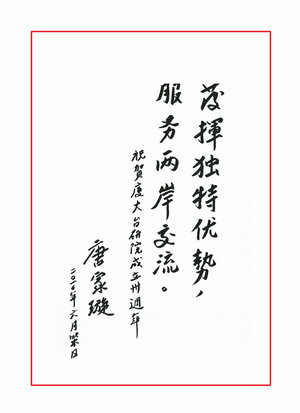 發揮独特优势，
服务两岸交流。
祝賀厦大台研院成立卅週年
唐家璇
二〇一〇年六月日